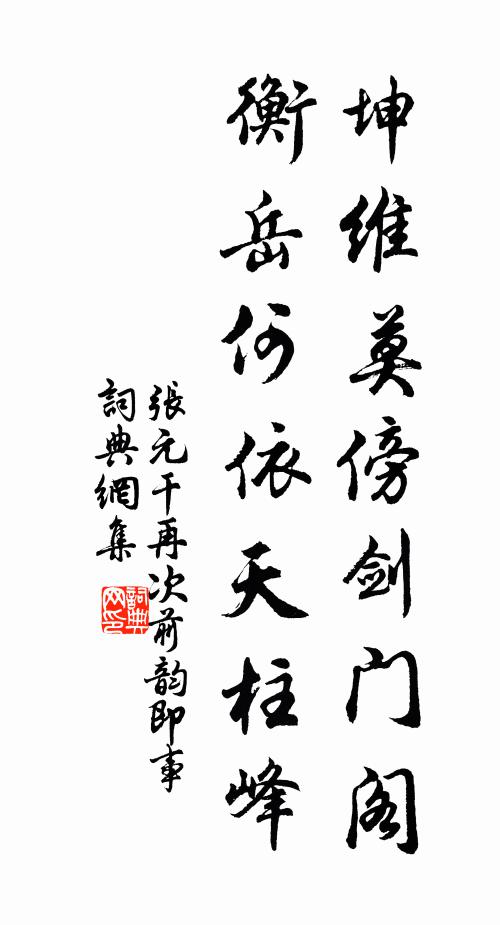 坤维莫傍剑门阁
衡岳何依天柱峰
張元干再次前韵即事
詞典網集
詞典网印